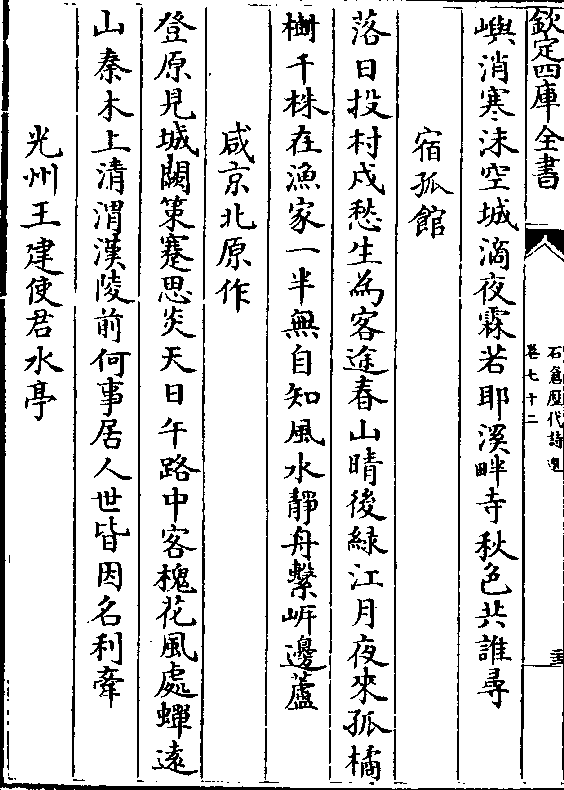 欽定四庫全書
石倉歷代詩選
卷七十二
嶼消寒沫空城滴夜霖若耶溪畔寺秋色共誰尋
宿孤館
落日投村戍愁生為客途春山晴後綠江月夜來孤橘
樹千株在漁家一半無自知風水靜舟繫岍邊蘆
咸京北原作
登原見城闕策蹇思炎天日午路中客槐花風處蟬逺
山秦木上清渭漢陵前何事居人世皆因名利牽
光州王建使君水亭